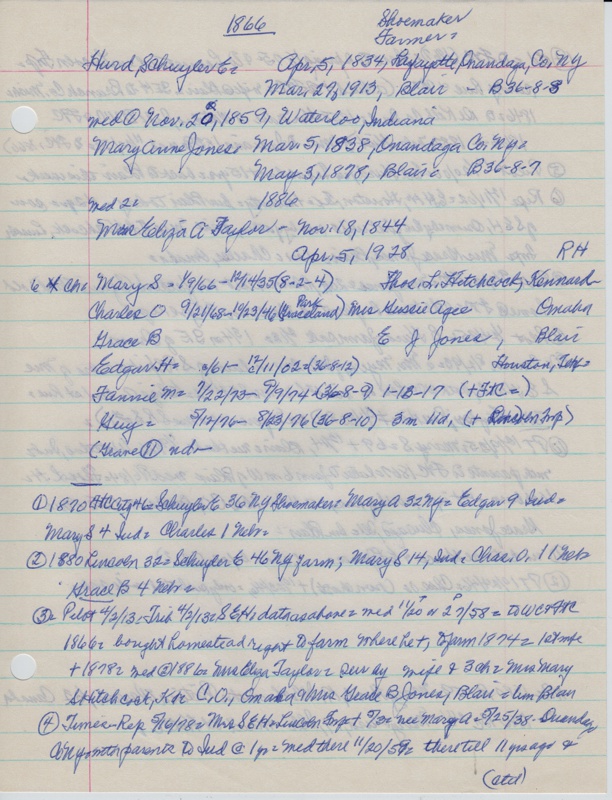 1866
Shoemaker
Farmer =
Hurd, Schuyler E = Apr. 5, 1834, Lafayette, Onandaga, Co. Ny
Mar. 27, 1913, Blair - B36-8-8
med @ Nov. 20, 1859, Waterloo, Indiana
Mary Anne Jones = Mar. 5, 1838, Onandaga Co. Ny =
May 3, 1878, Blair = B36-8-7
med 2 = 1886
Mrs Eliza A Taylor - Nov. 18, 1844
Apr. 5, 1928
RH
6 * Ch: Mary S = 1/9/66 - 12/14/35 (8-2-4) Thos. L. Hitchcock, Kennard
Charles O 9/21/68 - 10/23/46 (Graceland Park) Mrs Gussie Agee Omaha
Grace B E J Jones, Blair
Edgar H = /61 - 12/11/02 = (36-8-12) Houston, Tex =
Fannie M = 7/22/73 - 9/9/74 (36-8-9) 1-1B-17 (+ FHC =)
Guy = 5/12/76 - 8/23/76 (36-8-10) 3m 11d, (+
(Grave 11) nd =
① 1870 46 = Schuyler E 36 Ny Shoemaker; Mary A 32 Ny = Edgar 9 Ind =
Mary S 4 Ind = Charles 1 Neb =
② 1880 Lincoln 32 = Schuyler E 46 Ny farm; Mary S 14, Ind; Chas. O. 11 Neb
Grace B 4 Neb =
③ Pilot 4/2/13 = Trib 4/2/13 = S E H = data as above = med 11/20 or 27/58 = to WC +
1866 = bought homestead right to farm where let, to farm 1874 = 1st wife
+ 1878 = med @ 1886 = Mrs Eliza Taylor = surv by wife & 3 ch = Mrs Mary
S Hitchcock, K = C. O., Omaha & Mrs Grace B Jones, Blair = bur Blair
④ Times-Rep 5/16/78 = Mrs S E H = Lincoln + 5/3 = nee Mary A = 3/25/38 - Onandag
Co Ny with parents to Ind @ 1 yr = med there 11/20/59 = there till 11 yrs ago &
(ctd)